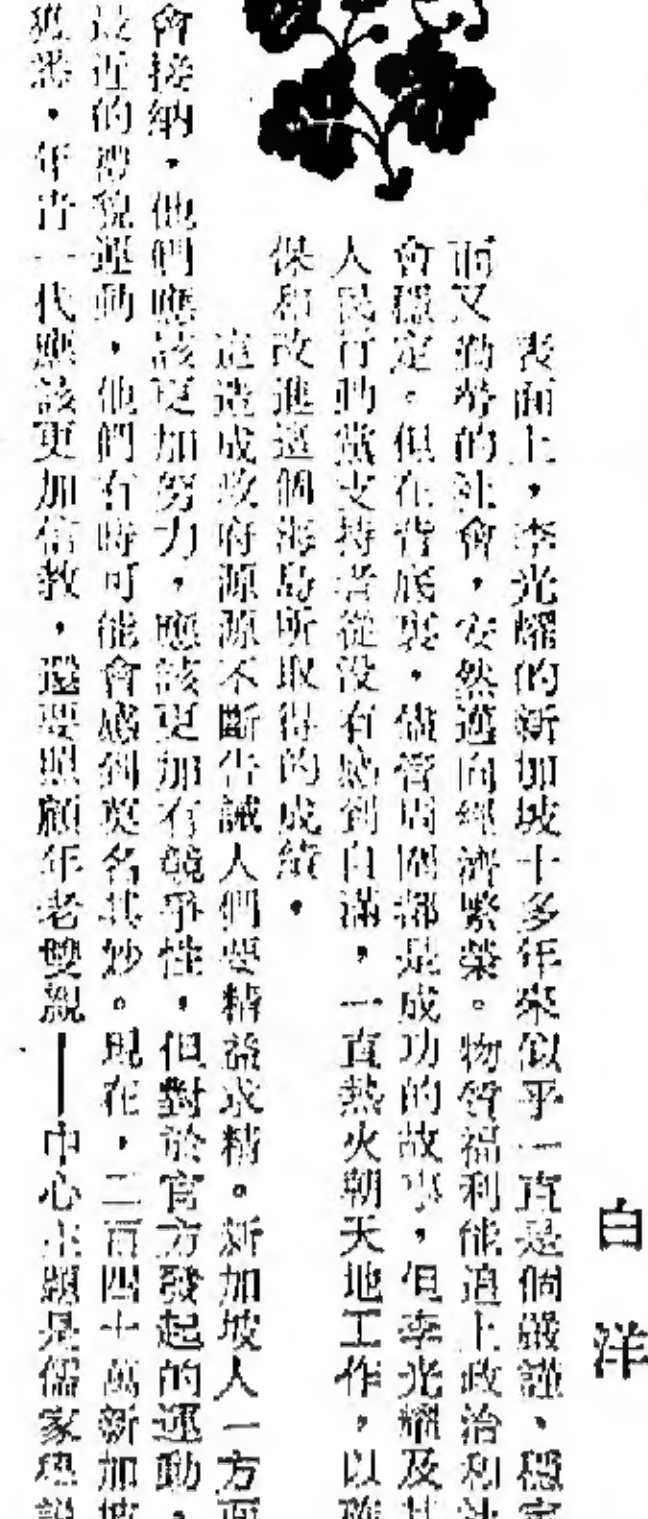 白洋
表面上，李光耀的新加坡十多年來似乎一直是個嚴謹、穩定
而又勤勞的社會，安然邁向經濟繁榮。物質福利能追上政治和社
會穩定。但在背底裏，儘管周圍都是成功的故事，但李光耀及其
人民行動黨支持者從沒有感到自滿，一直熱火朝天地工作，以確
保和改進這個海島所取得的成績。
這造成政府源源不斷告誡人們要精益求精。新加坡人一方面
會接納，他們應該更加努力，應該更加有競爭性，但對於官方發起的運動，
最近的禮貌運動，他們有時可能會感到莫名其妙。現在，二百四十萬新加坡
獲悉，年青一代應該更加信教，還要照顧年老雙親——中心主題是儒家學說